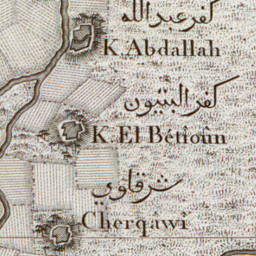 كفر عبد الله
K. Abdallah
كفر البتيون
K. El Bétioûn
شرقاوي
Cherqâwî